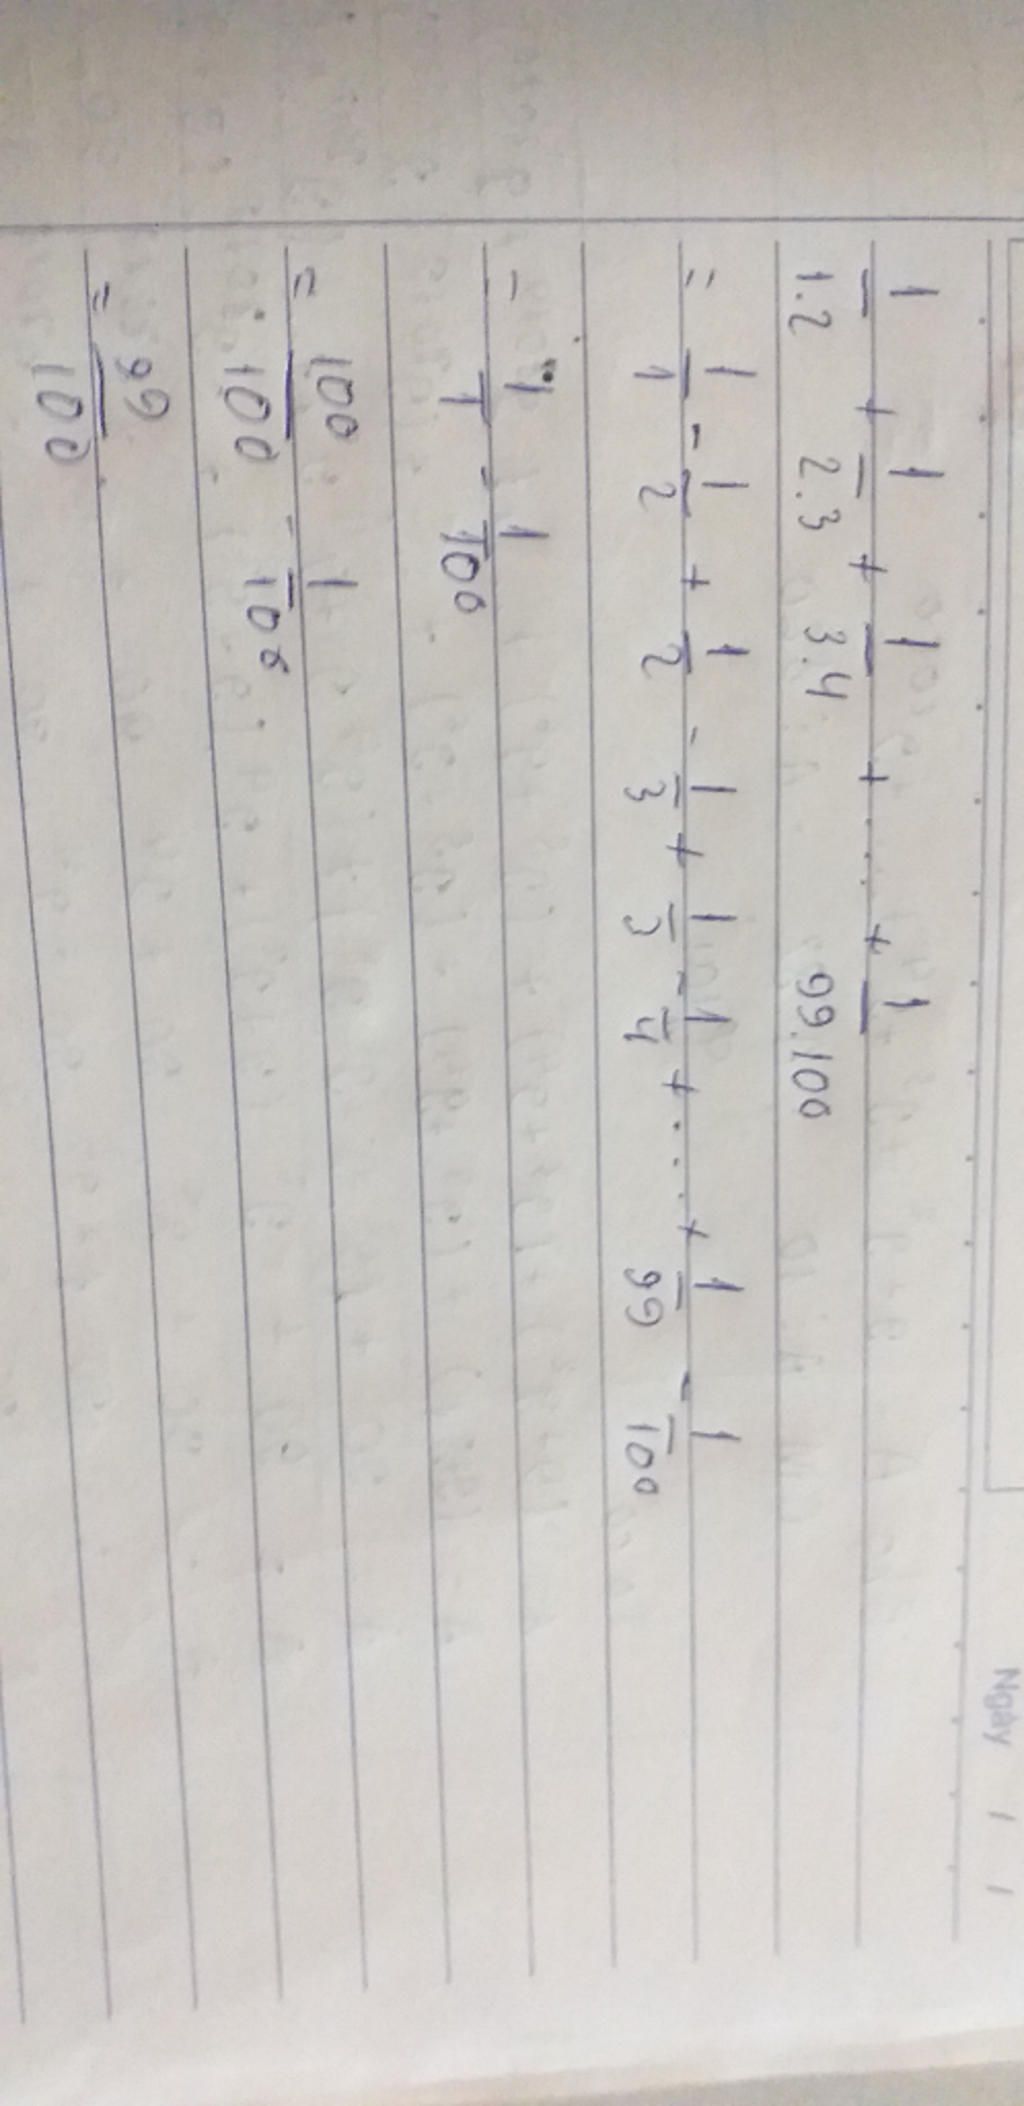 Ngày / /
1/1.2 + 1/2.3 + 1/3.4 + ..... + 1/99.100
= 1/1 - 1/2 + 1/2 - 1/3 + 1/3 - 1/4 + .... + 1/99 - 1/100
= 1/1 - 1/100
= 100/100 - 1/100
= 99/100